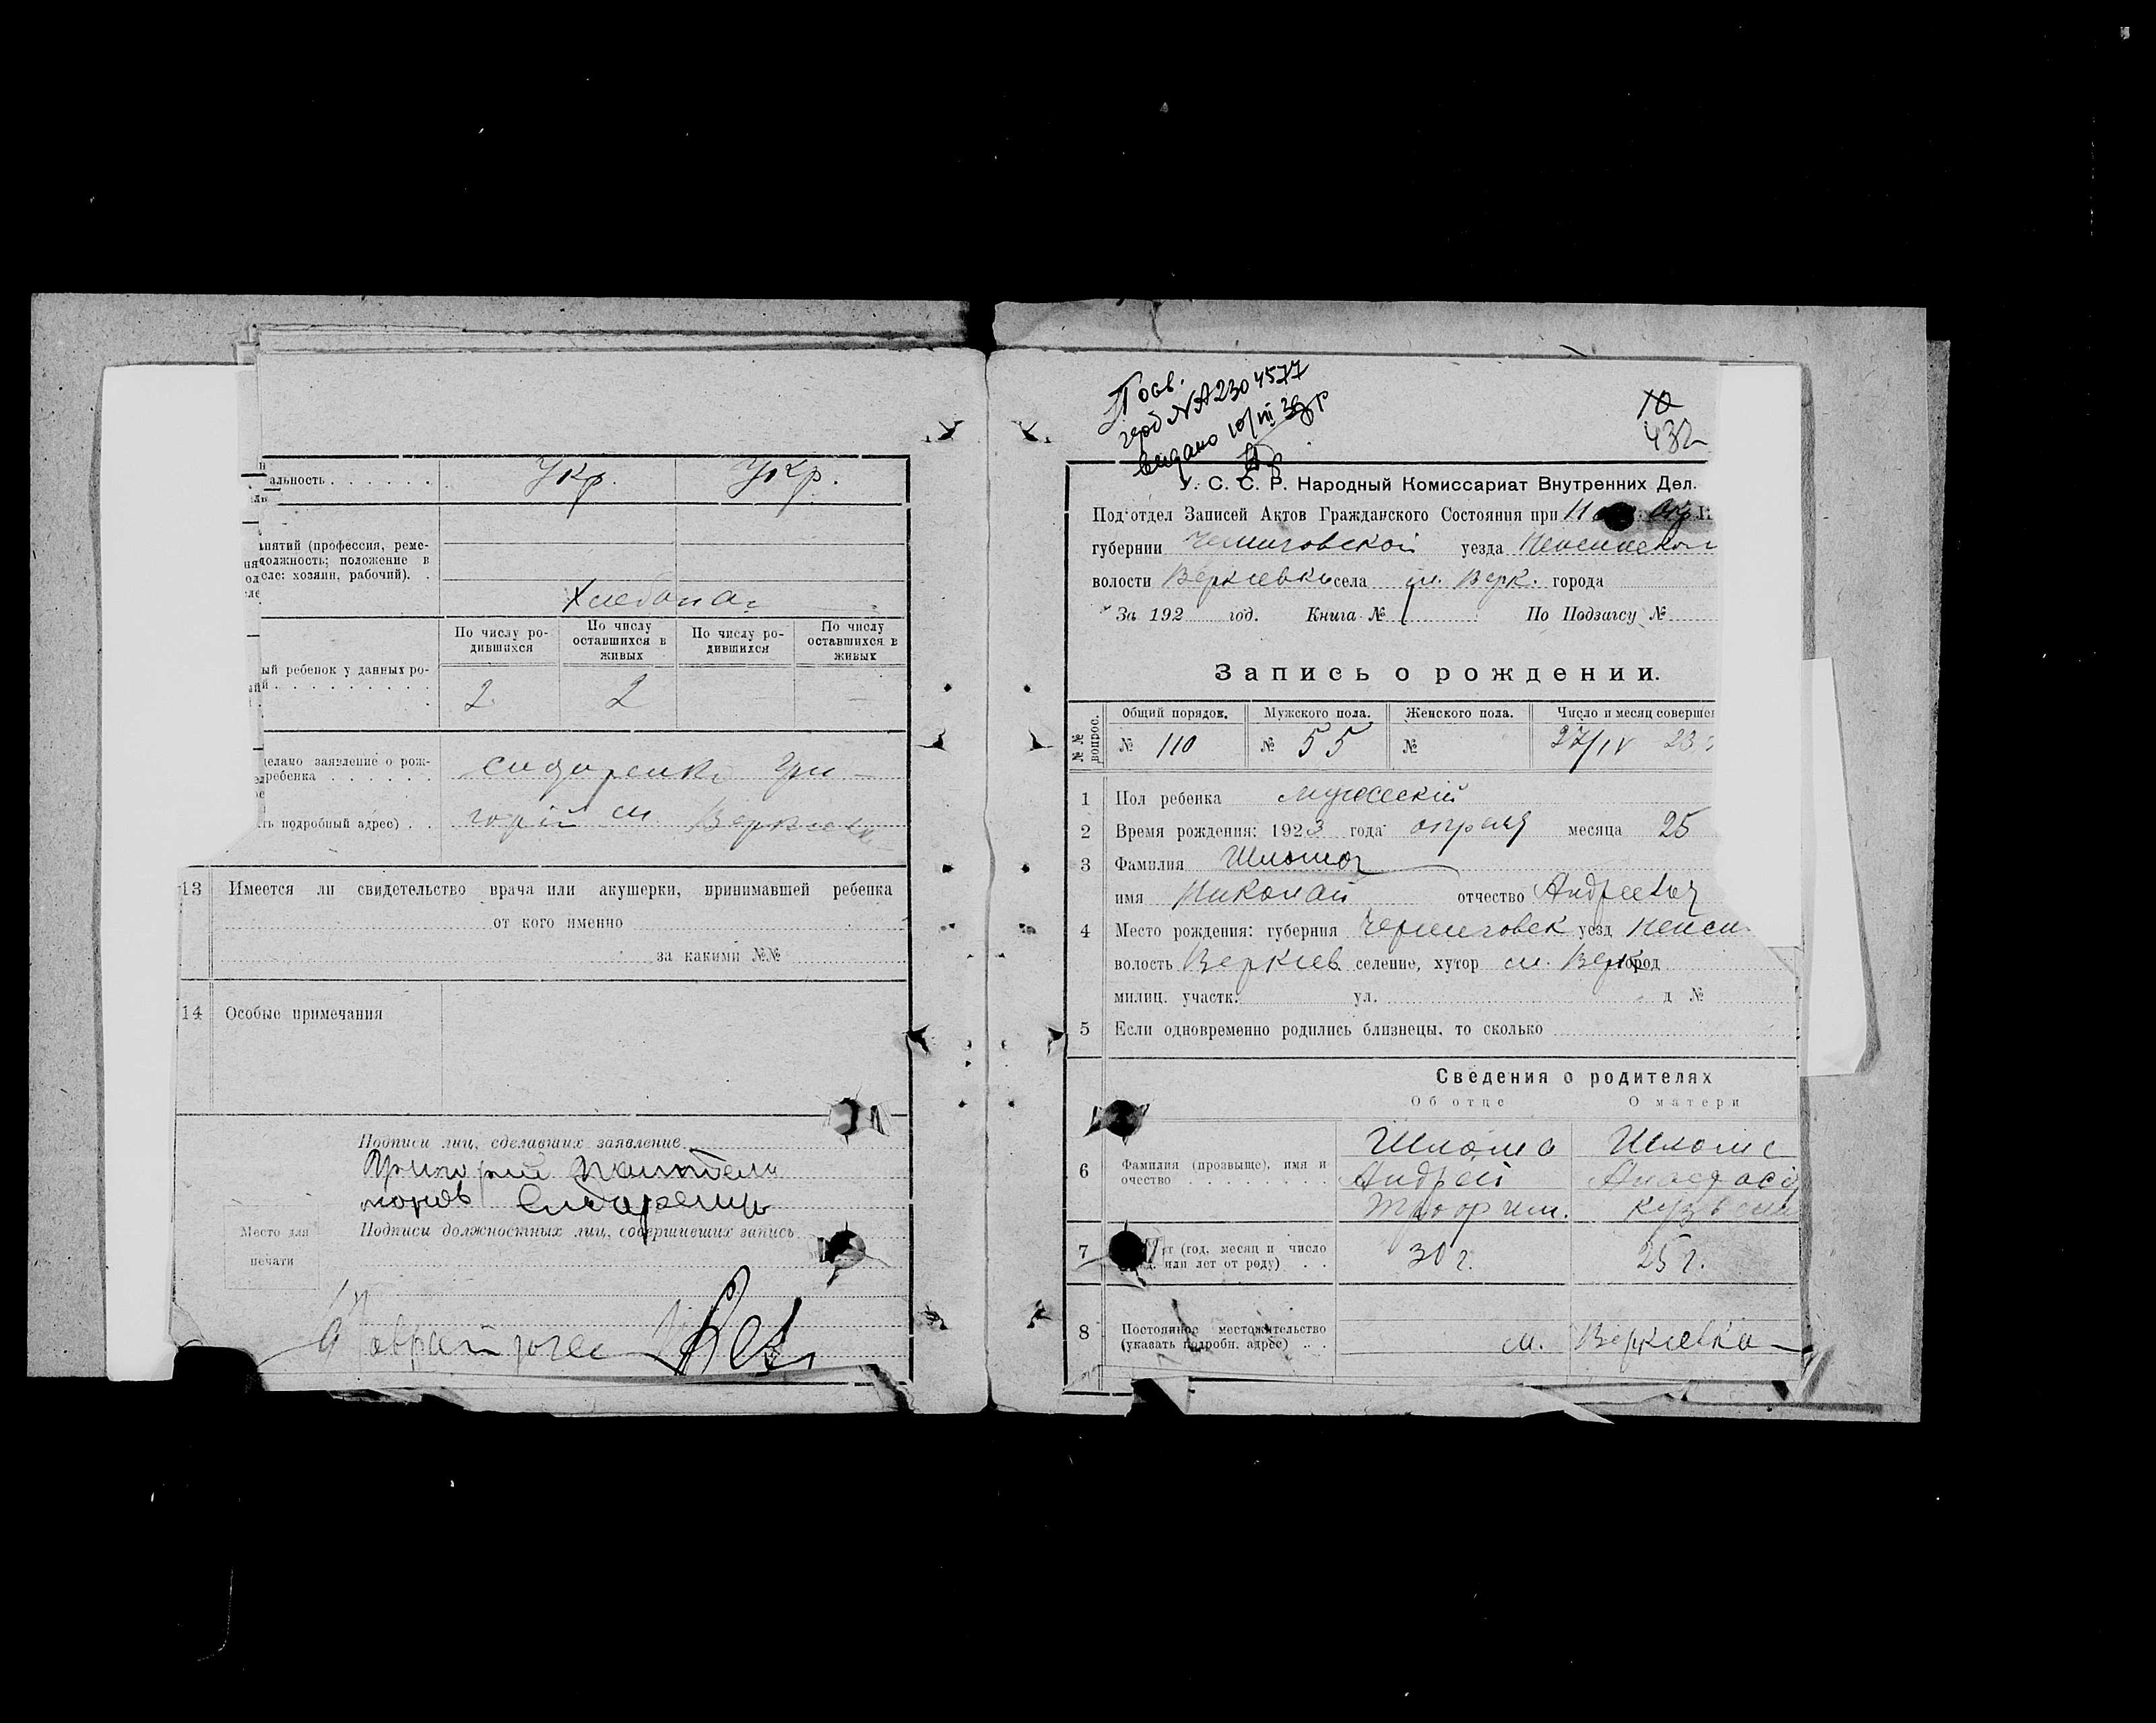 альность . . . . . . Укр. Укр.
анятий (профессия, реме-
должность; положение в
хозяин, рабочий). .
По числу ро-
дившихся
По числу
оставшихся в
живых
По числу ро-
дившихся
По числу
оставшихся в
живых
ый ребенок у данных ро-
2 2 — —
делано заявление о рож-
ребенка . . . . . .
Сидоренко Гри-
ть подробный адрес) . . горій м. Веркиевк
13 Имеется ли свидетельство врача или акушерки, принимавшей ребенка
от кого именно
за какими №№
14 Особые примечания
Подписи лиц, сделавших заявление
Григорий
Подписи должностных лиц, совершивших запись
Место для
печати
Посв.
№ А 230 4577
видано 10/III 39 р
10
432
У. С. С. Р. Народный Комиссариат Внутренних Дел.
Под'отдел Записей Актов Гражданского Состояния при
губернии Черниговской уезда
волости Веркіевк села м. Верк. города
За 192 год. Книга № По Подзагсу №
Запись о рождении.
№№ вопрос.
Общий порядок. Мужского пола. Женского пола. Число и месяц соверше
№ 110 № 55 № 27/IV 23
1 Пол ребенка мужеский
2 Время рождения: 1923 года апреля месяца 25
3 Фамилия
имя Николай отчество Андреевич
4 Место рождения: губерния Черниговск уезд
волость Веркиев селение, хутор м. Верк город
милиц. участк. ул. д №
5 Если одновременно родились близнецы, то сколько
Сведения о родителях
Об отце О матери
6 Фамилия (прозвище), имя и
очество . . . . . . . .
Шлома
Андрей
Шлома
7 ст (год, месяц и число
или лет от роду) . .
30 г. 25 г.
8 Постоянное местожительство
(указать подробн. адрес) . . .
м. Веркиевка